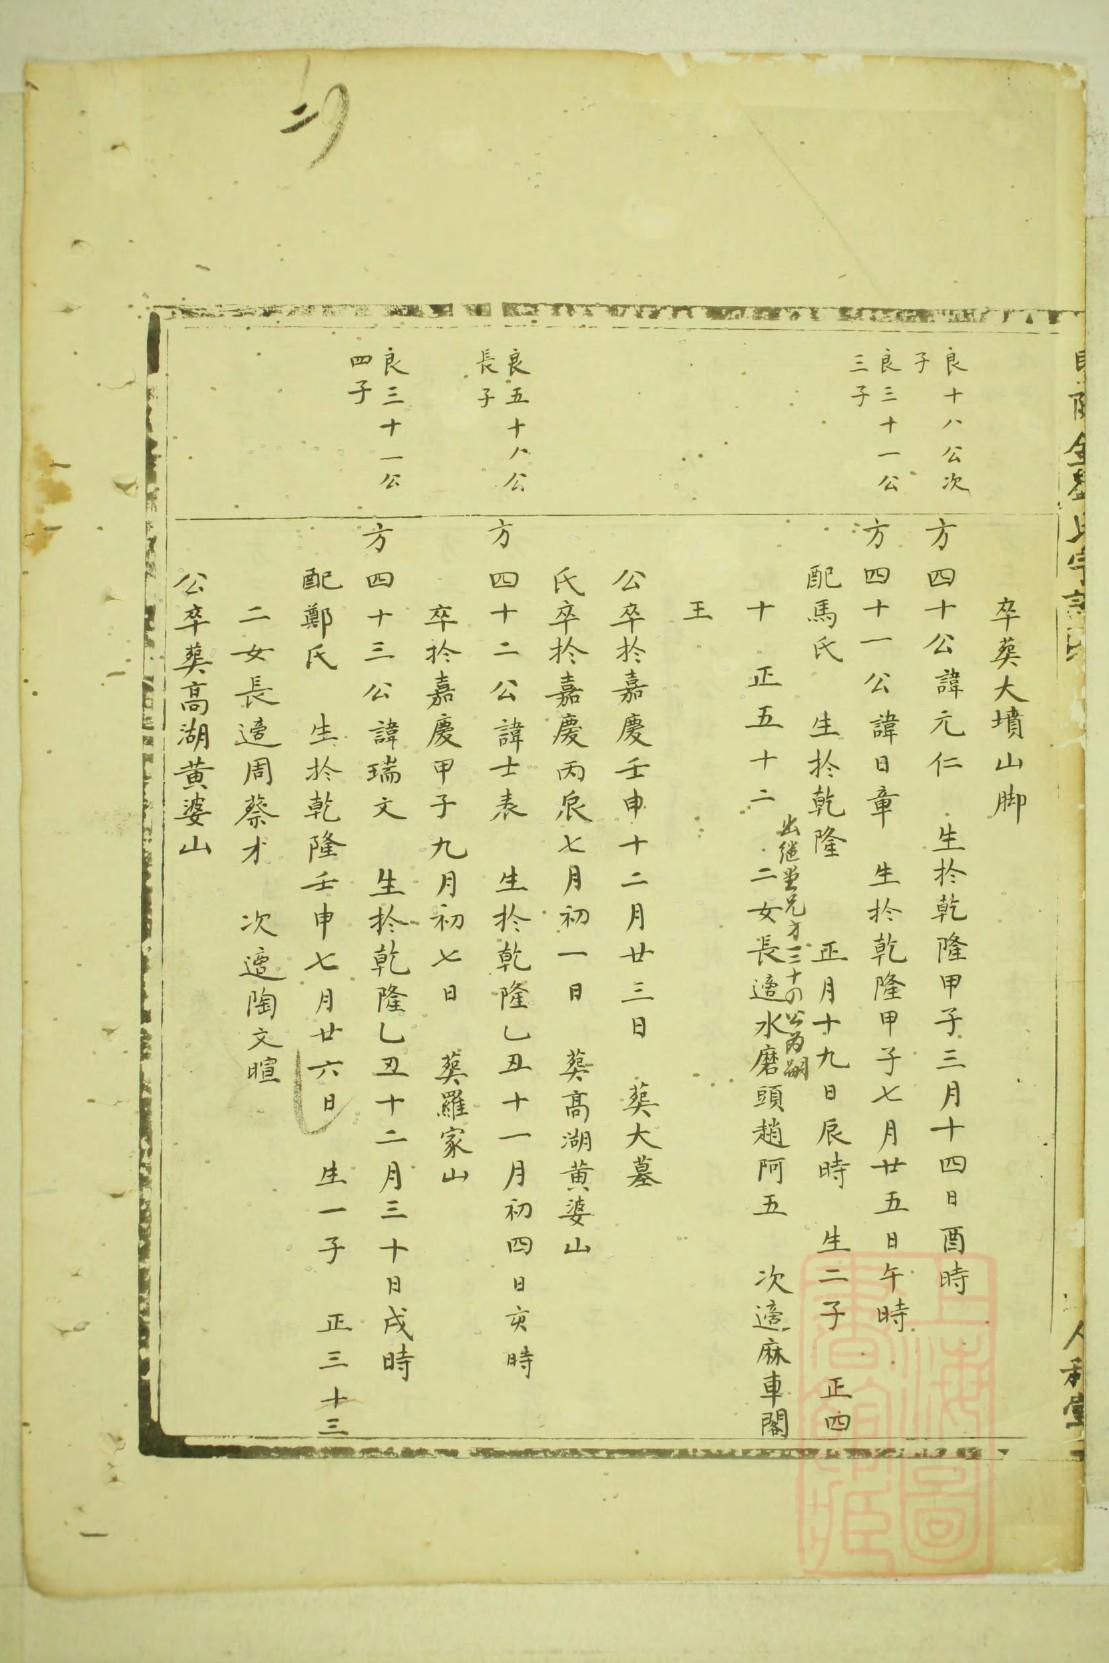 二
卒葬大墳山脚
良十八公次
子
方四十公諱元仁 生於乾隆甲子三月十四日酉時
良三十一公
三子
方四十一公諱日章 生於乾隆甲子七月廿五日午時
配馬氏 生於乾隆 正月十九日辰時 生二子 正四
十 正五十二 出繼堂兄方三十四公為嗣 二女長適水磨頭趙阿五 次適麻車閣
王
公卒於嘉慶壬申十二月廿三日 葬大墓
氏卒於嘉慶丙辰七月初一日 葬高湖黄婆山
良五十八公
長子
方四十二公諱士表 生於乾隆乙丑十一月初四日亥時
卒於嘉慶甲子九月初七日 葬羅家山
良三十一公
四子
方四十三公諱瑞文 生於乾隆乙丑十二月三十日戌時
配鄭氏 生於乾隆壬申七月廿六日 生一子 正三十三
二女長適周蔡才 次適陶文暄
公卒葬高湖黄婆山
上海圖書館